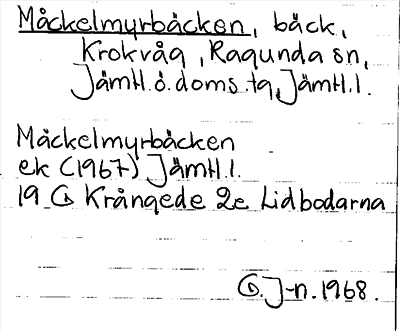 Måckelmyrbäcken, bäck,
Krokvåg, Ragunda sn,
Jämtl.ö.doms.tg, Jämtl.l.
Måckelmyrbäcken
ek (1967) Jämtl.l.
19 G Krångede 2e Lidbodarna
G.J-n.1968.